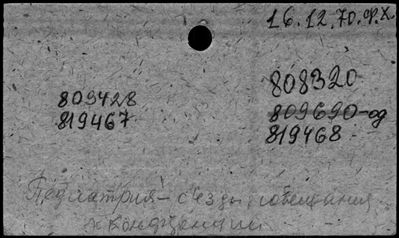 16.12.70.Ф.Х.
809428
819467
808320
809690-од
819468
Педиатрия - съезды, совещания
и конференции